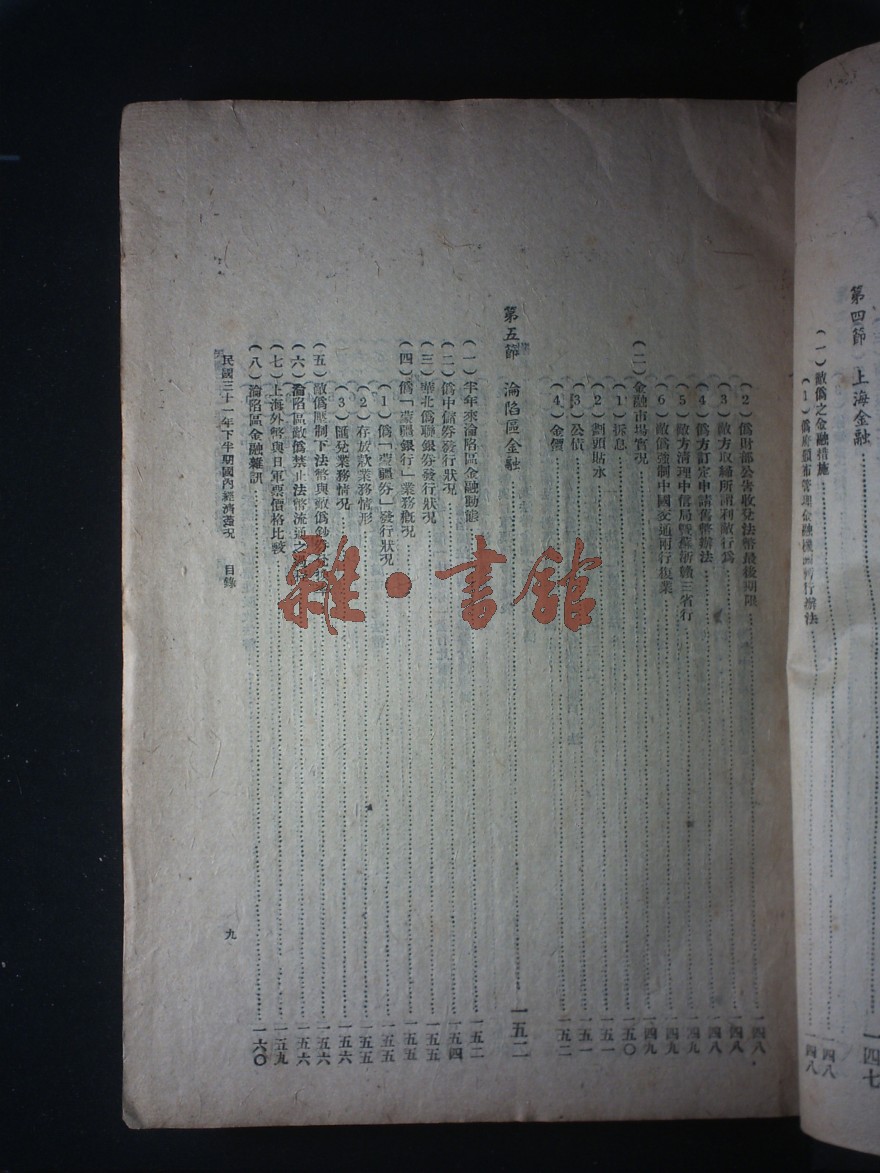 第四節 上海金融 一四七
(一)敵僞之金融措施 一四八
(1)僞府頒布管理金融機關暫行辦法 一四八
(2)僞財部公告收兌法幣最後期限 一四八
(3)敵方取締所謂利敵行爲 一四八
(4)僞方訂定申請舊幣辦法 一四八
(5)敵方清理中信局暨蘇浙贛三省行 一四九
(6)敵僞強制中國交通兩行復業 一四九
(二)金融市場實況 一四九
(1)拆息 一五〇
(2)劃頭貼水 一五一
(3)公債 一五一
(4)金價 一五二
第五節 淪陷區金融 一五二
(一)半年來淪陷區金融動態 一五二
(二)僞中儲券發行狀況 一五四
(三)華北僞聯銀券發行狀況 一五五
(四)僞「蒙疆銀行」業務槪況 一五五
(1)僞「蒙疆券」發行狀況 一五五
(2)存放款業務情形 一五五
(3)匯兌業務情況 一五六
(五)敵僞壓制下法幣與敵僞鈔券 一五六
(六)淪陷區敵僞禁止法幣流通之 一五六
(七)上海外幣與日軍票價格比較 一五九
(八)淪陷區金融雜訊 一六〇
民國三十一年下半期國內經濟槪況 目錄 九
雜·書館